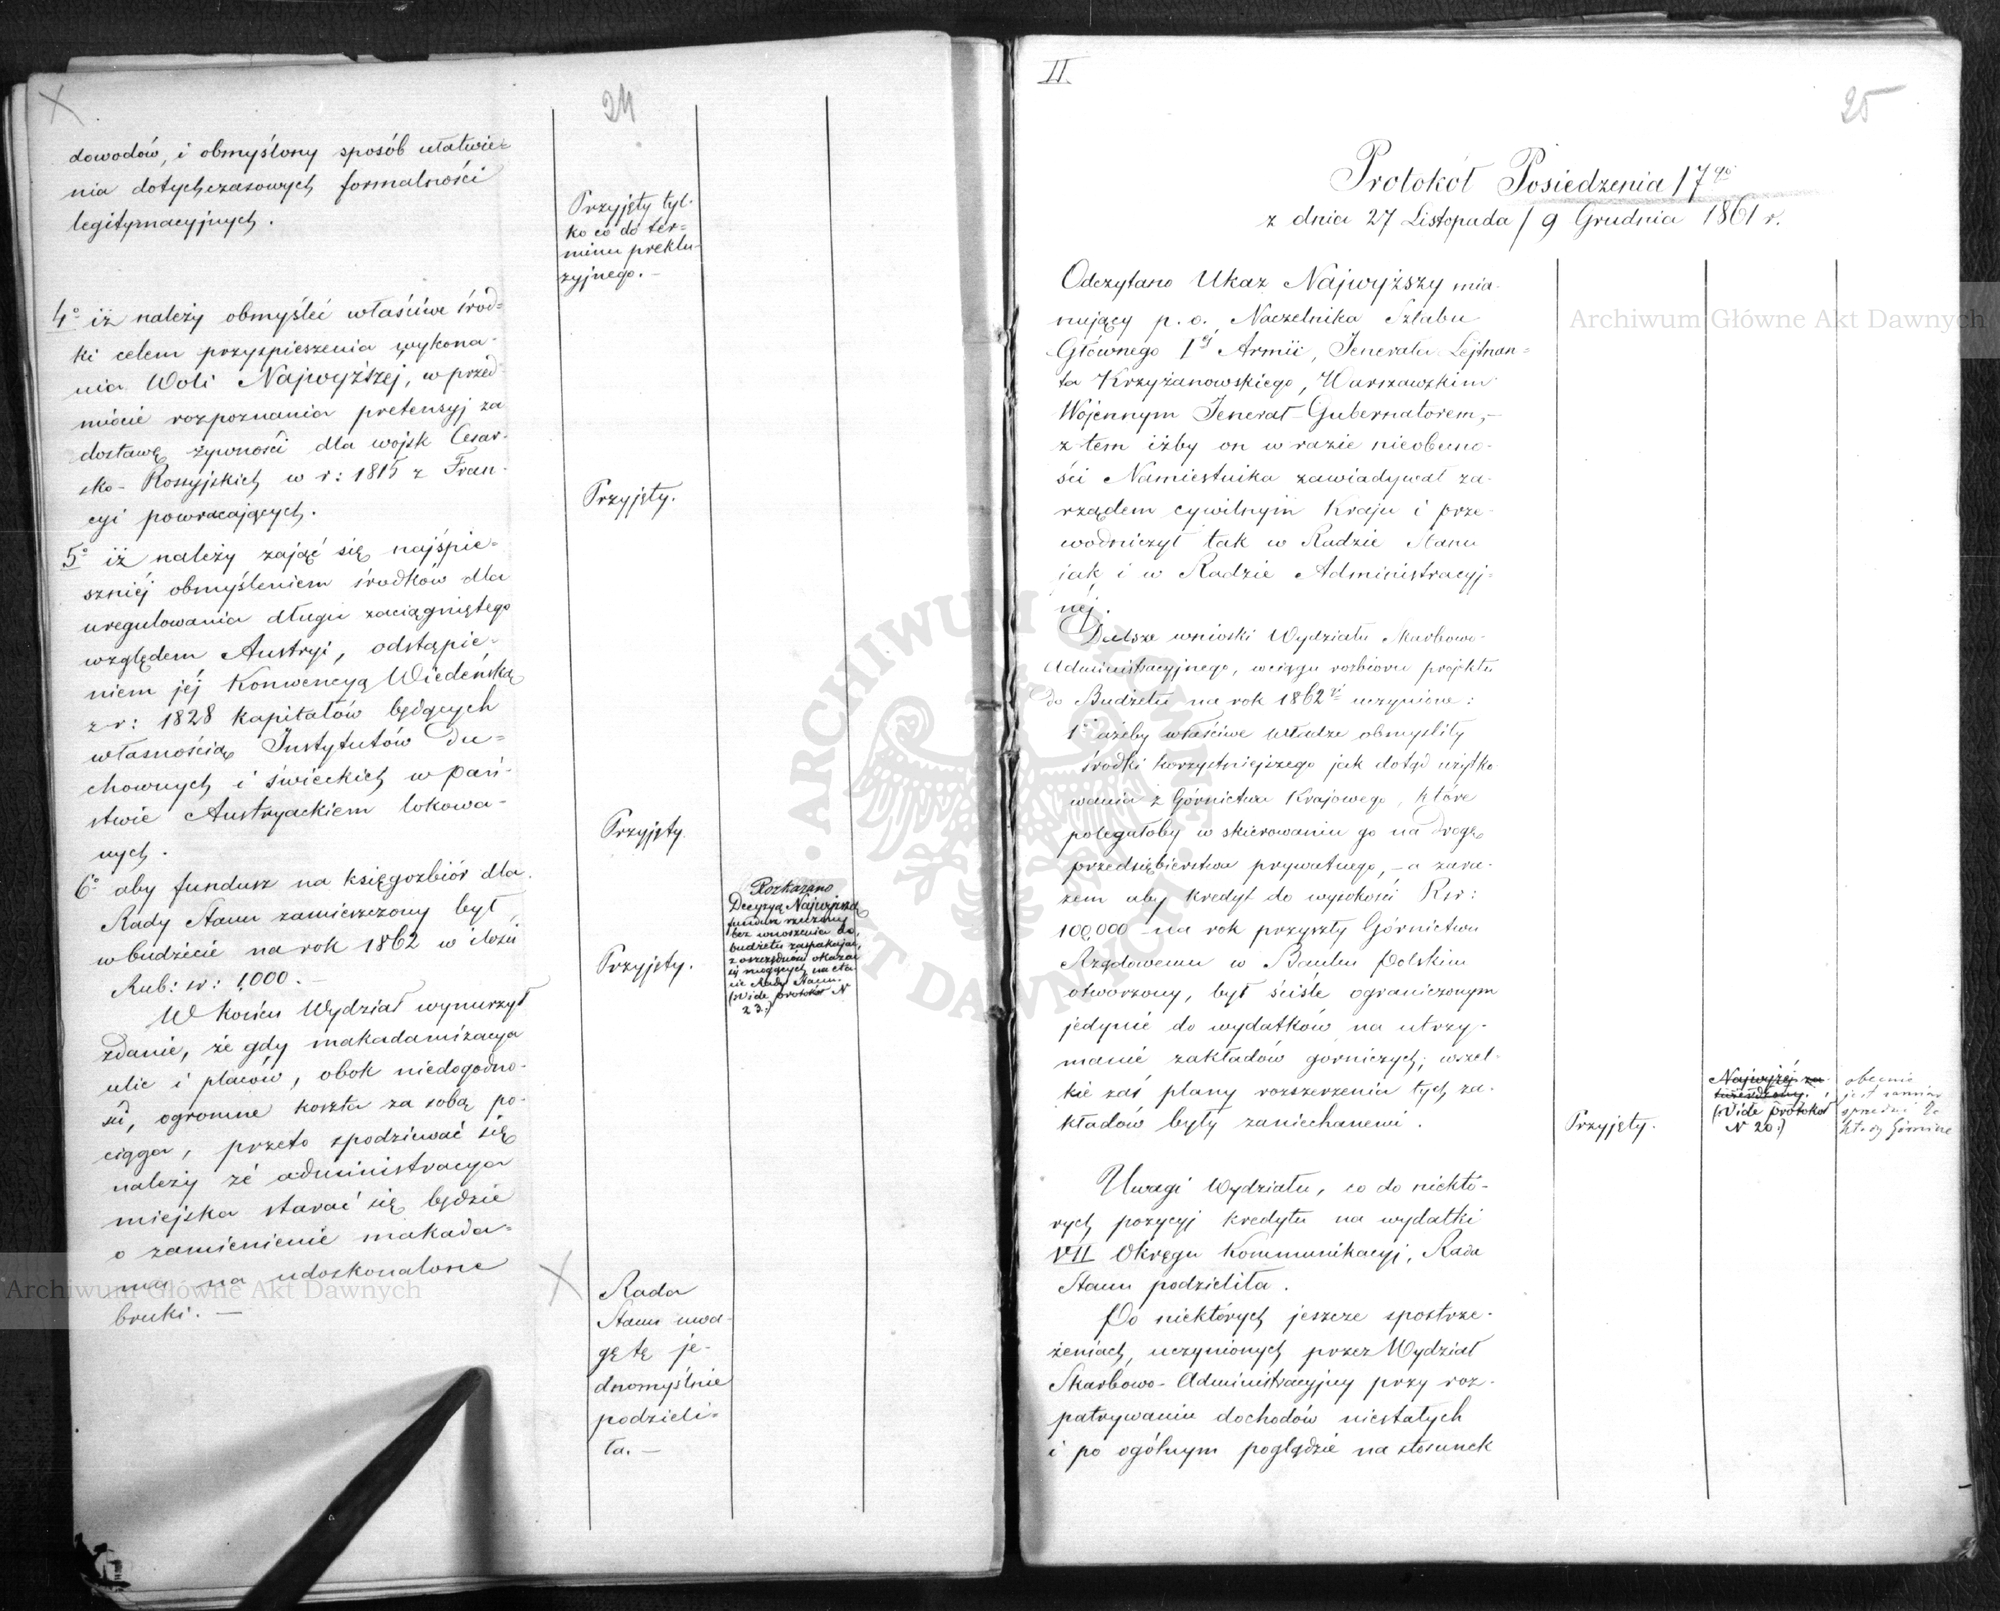 24
dowodów, i obmyślony sposób ułatwie=
nia dotychczasowych formalności
legitymacyjnych.
Przyjęty tyl-
ko co do ter=
minu preklu-
zyjnego. —
4° iż należy obmyśleć właściwe środ=
ki celem przyspieszenia wykona-
nia Woli Najwyższej, w przed-
miocie rozpoznania pretensyj za
dostawę żywności dla wojsk Cesar-
sko-Rossyjskich w r: 1815 z Fran-
cyi powracających.
Przyjęty.
5° iż należy zająć się najśpie-
szniéj obmyśleniem środków dla
uregulowania długu zaciągniętego
względem Austryi, odstąpie-
niem jéj Konwencyą Wiedeńską
z r: 1828 kapitałów będących
własnością Instytutów Du=
chownych i świeckich w pań-
stwie Austryackiem lokowa-
nych.
Przyjęty.
6° aby fundusz na księgozbiór dla
Rady Stanu zamieszczony był
w budżecie na rok 1862 w ilości
Rub: sr: 1,000. —
Przyjęty.
Rozkazano
Decyzyą Najwyższą
fundusz rzeczony
bez wnoszenia do
budżetu zaspakajać,
z oszczędności okazać
się mogących na eta-
cie Rady Stanu.
(Vide protokół N
23.)
W końcu Wydział wynurzył
zdanie, że gdy makadamizacya
ulic i placów, obok niedogodno-
ści, ogromne koszta za sobą po-
ciąga, przeto spodziewać się
należy że administracya
miejska starać się będzie
o zamienienie makada=
mu na udoskonalone
bruki. —
Rada
Stanu uwa-
gę tę je-
dnomyślnie
podzieli-
ła. —
II.
25
Protokół Posiedzenia 17go
z dnia 27 Listopada / 9 Grudnia 1861 r.
Odczytano Ukaz Najwyższy mia-
nujący p. o. Naczelnika Sztabu
Głównego 1éj Armii, Jenerała Lejtnan=
ta Krzyżanowskiego, Warszawskim
Wojennym Jenerał-Gubernatorem,—
z tem iżby on w razie nieobecno-
ści Namiestnika zawiadywał za-
rządem cywilnym Kraju i prze-
wodniczył tak w Radzie Stanu
jak i w Radzie Administracyj=
néj.
Dalsze wnioski Wydziału Skarbowo-
Administracyjnego, w ciągu rozbioru projektu
do Budżetu na rok 1862 uczynione:
1° ażeby właściwe władze obmyśliły
środki korzystniejszego jak dotąd użytko
wania z Górnictwa Krajowego, które
polegałoby w skierowaniu go na drogę
przedsiębierstwa prywatnego, — a zara-
zem aby kredyt do wysokości Rsr:
100,000 na rok przyszły Górnictwu
Rządowemu w Banku Polskim
otworzony, był ściśle ograniczonym
jedynie do wydatków na utrzy-
manie zakładów górniczych; wszel-
kie zaś plany rozszerzenia tych za-
kładów były zaniechanemi.
Przyjęty.
Najwyżéj za-
twierdzony.
(Vide protokół
N 20.)
obecnie
jest zamiar
sprzedać Za
kłady Górnicze
Uwagi Wydziału, co do niektó-
rych pozycyj kredytu na wydatki
VII Okręgu Kommunikacyj, Rada
Stanu podzieliła.
Po niektórych jeszcze spostrze-
żeniach, uczynionych przez Wydział
Skarbowo-Administracyjny przy roz-
patrywaniu dochodów niestałych
i po ogólnym poglądzie na stosunek
Archiwum Główne Akt Dawnych
Archiwum Główne Akt Dawnych
ARCHIWUM GŁÓWNE AKT DAWNYCH